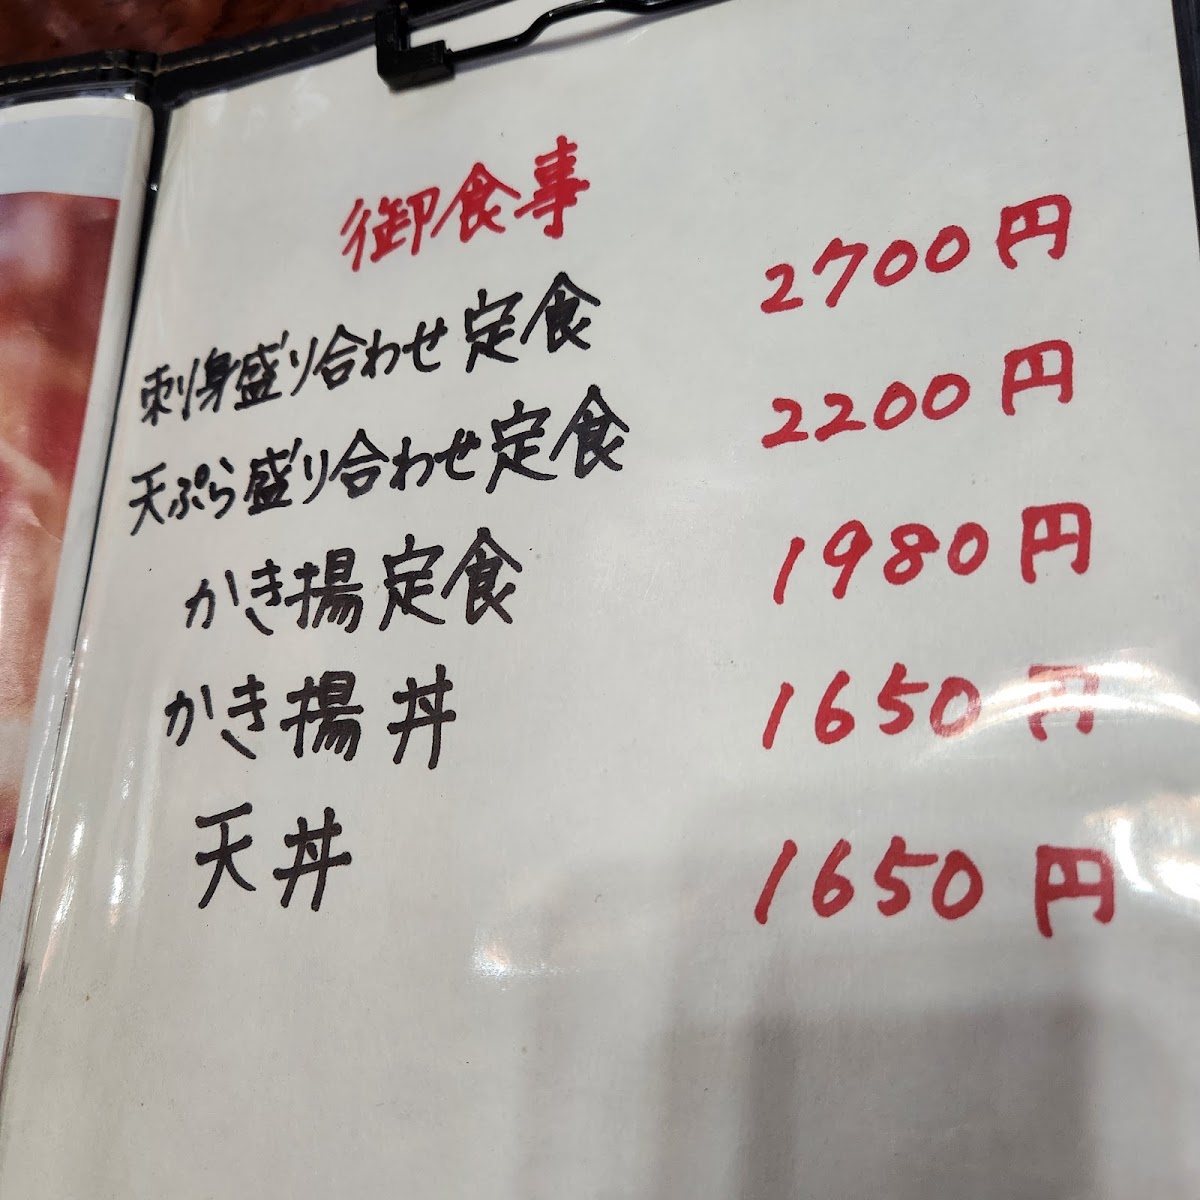 御食事
刺身盛り合わせ定食 2700円
天ぷら盛り合わせ定食 2200円
かき揚定食 1980円
かき揚丼 1650円
天丼 1650円